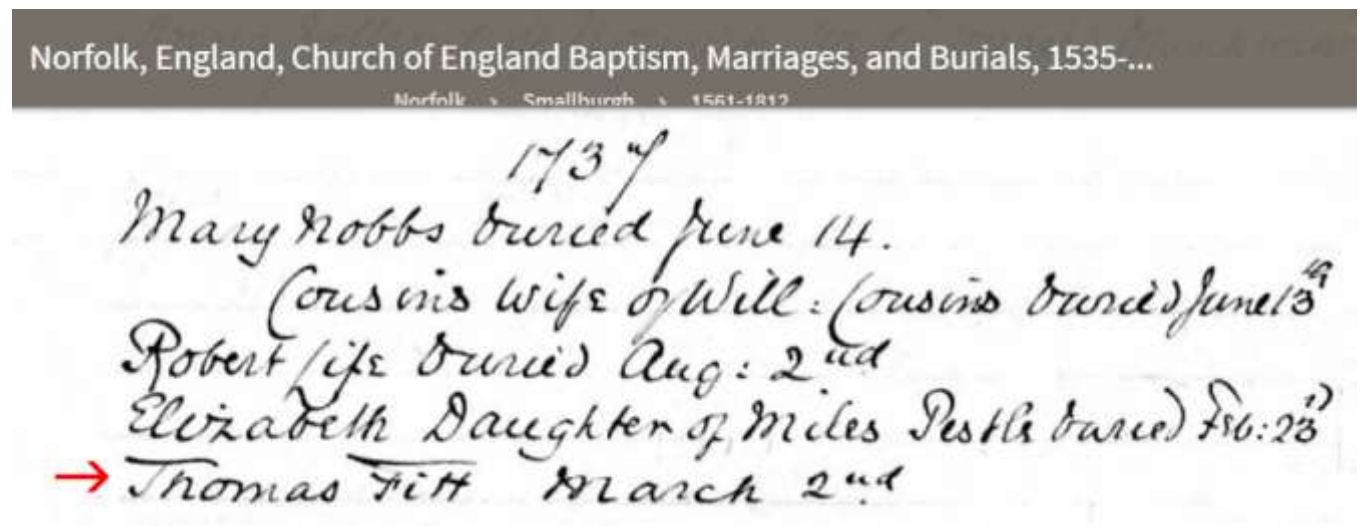 Norfolk, England, Church of England Baptism, Marriages, and Burials, 1535-...
Norfolk › Smallburgh › 1561-1812
1737
Mary Nobbs buried June 14.
Cousins wife of Will: Cousins buried June 13
Robert buried Aug: 2nd
Elizabeth Daughter of Miles Pestle buried Feb: 23
→ Thomas Fitt March 2nd